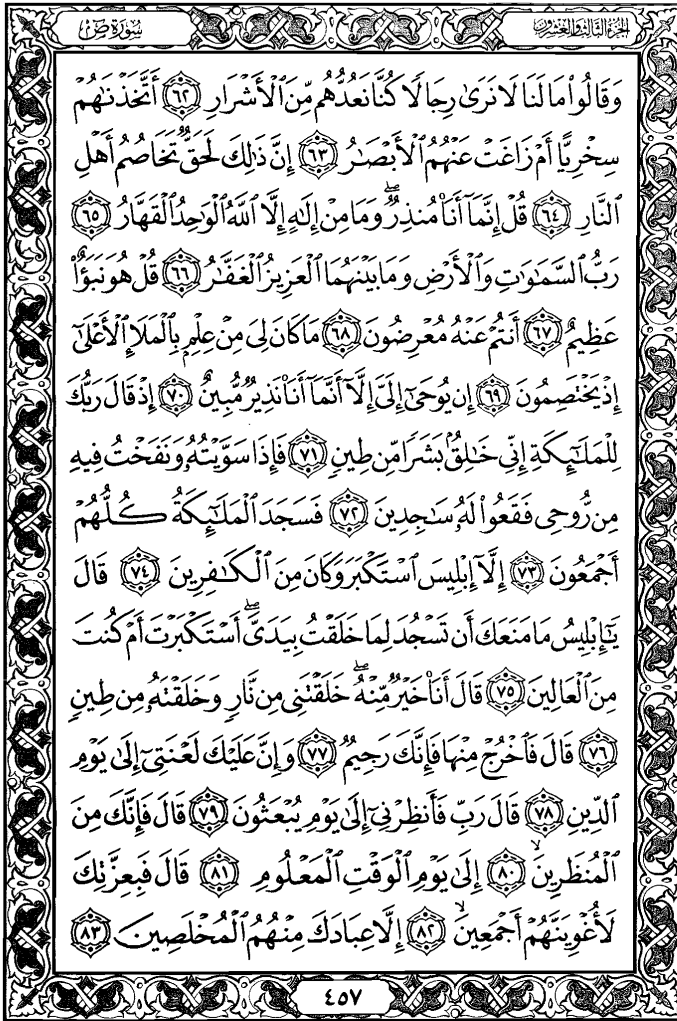 الجزء الثالث والعشرون
سورة ص
وَقَالُوا۟ مَا لَنَا لَا نَرَىٰ رِجَالًا كُنَّا نَعُدُّهُم مِّنَ ٱلْأَشْرَارِ ٦٢ أَتَّخَذْنَٰهُمْ
سِخْرِيًّا أَمْ زَاغَتْ عَنْهُمُ ٱلْأَبْصَٰرُ ٦٣ إِنَّ ذَٰلِكَ لَحَقٌّ تَخَاصُمُ أَهْلِ
ٱلنَّارِ ٦٤ قُلْ إِنَّمَآ أَنَا۠ مُنذِرٌ ۖ وَمَا مِنْ إِلَٰهٍ إِلَّا ٱللَّهُ ٱلْوَٰحِدُ ٱلْقَهَّارُ ٦٥
رَبُّ ٱلسَّمَٰوَٰتِ وَٱلْأَرْضِ وَمَا بَيْنَهُمَا ٱلْعَزِيزُ ٱلْغَفَّٰرُ ٦٦ قُلْ هُوَ نَبَؤٌا۟
عَظِيمٌ ٦٧ أَنتُمْ عَنْهُ مُعْرِضُونَ ٦٨ مَا كَانَ لِىَ مِنْ عِلْمٍۭ بِٱلْمَلَإِ ٱلْأَعْلَىٰٓ
إِذْ يَخْتَصِمُونَ ٦٩ إِن يُوحَىٰٓ إِلَىَّ إِلَّآ أَنَّمَآ أَنَا۠ نَذِيرٌ مُّبِينٌ ٧٠ إِذْ قَالَ رَبُّكَ
لِلْمَلَٰٓئِكَةِ إِنِّى خَٰلِقٌۢ بَشَرًا مِّن طِينٍ ٧١ فَإِذَا سَوَّيْتُهُۥ وَنَفَخْتُ فِيهِ
مِن رُّوحِى فَقَعُوا۟ لَهُۥ سَٰجِدِينَ ٧٢ فَسَجَدَ ٱلْمَلَٰٓئِكَةُ كُلُّهُمْ
أَجْمَعُونَ ٧٣ إِلَّآ إِبْلِيسَ ٱسْتَكْبَرَ وَكَانَ مِنَ ٱلْكَٰفِرِينَ ٧٤ قَالَ
يَٰٓإِبْلِيسُ مَا مَنَعَكَ أَن تَسْجُدَ لِمَا خَلَقْتُ بِيَدَىَّ ۖ أَسْتَكْبَرْتَ أَمْ كُنتَ
مِنَ ٱلْعَالِينَ ٧٥ قَالَ أَنَا۠ خَيْرٌ مِّنْهُ ۖ خَلَقْتَنِى مِن نَّارٍ وَخَلَقْتَهُۥ مِن طِينٍ
٧٦ قَالَ فَٱخْرُجْ مِنْهَا فَإِنَّكَ رَجِيمٌ ٧٧ وَإِنَّ عَلَيْكَ لَعْنَتِىٓ إِلَىٰ يَوْمِ
ٱلدِّينِ ٧٨ قَالَ رَبِّ فَأَنظِرْنِىٓ إِلَىٰ يَوْمِ يُبْعَثُونَ ٧٩ قَالَ فَإِنَّكَ مِنَ
ٱلْمُنظَرِينَ ۙ ٨٠ إِلَىٰ يَوْمِ ٱلْوَقْتِ ٱلْمَعْلُومِ ٨١ قَالَ فَبِعِزَّتِكَ
لَأُغْوِيَنَّهُمْ أَجْمَعِينَ ۙ ٨٢ إِلَّا عِبَادَكَ مِنْهُمُ ٱلْمُخْلَصِينَ ٨٣
٤٥٧